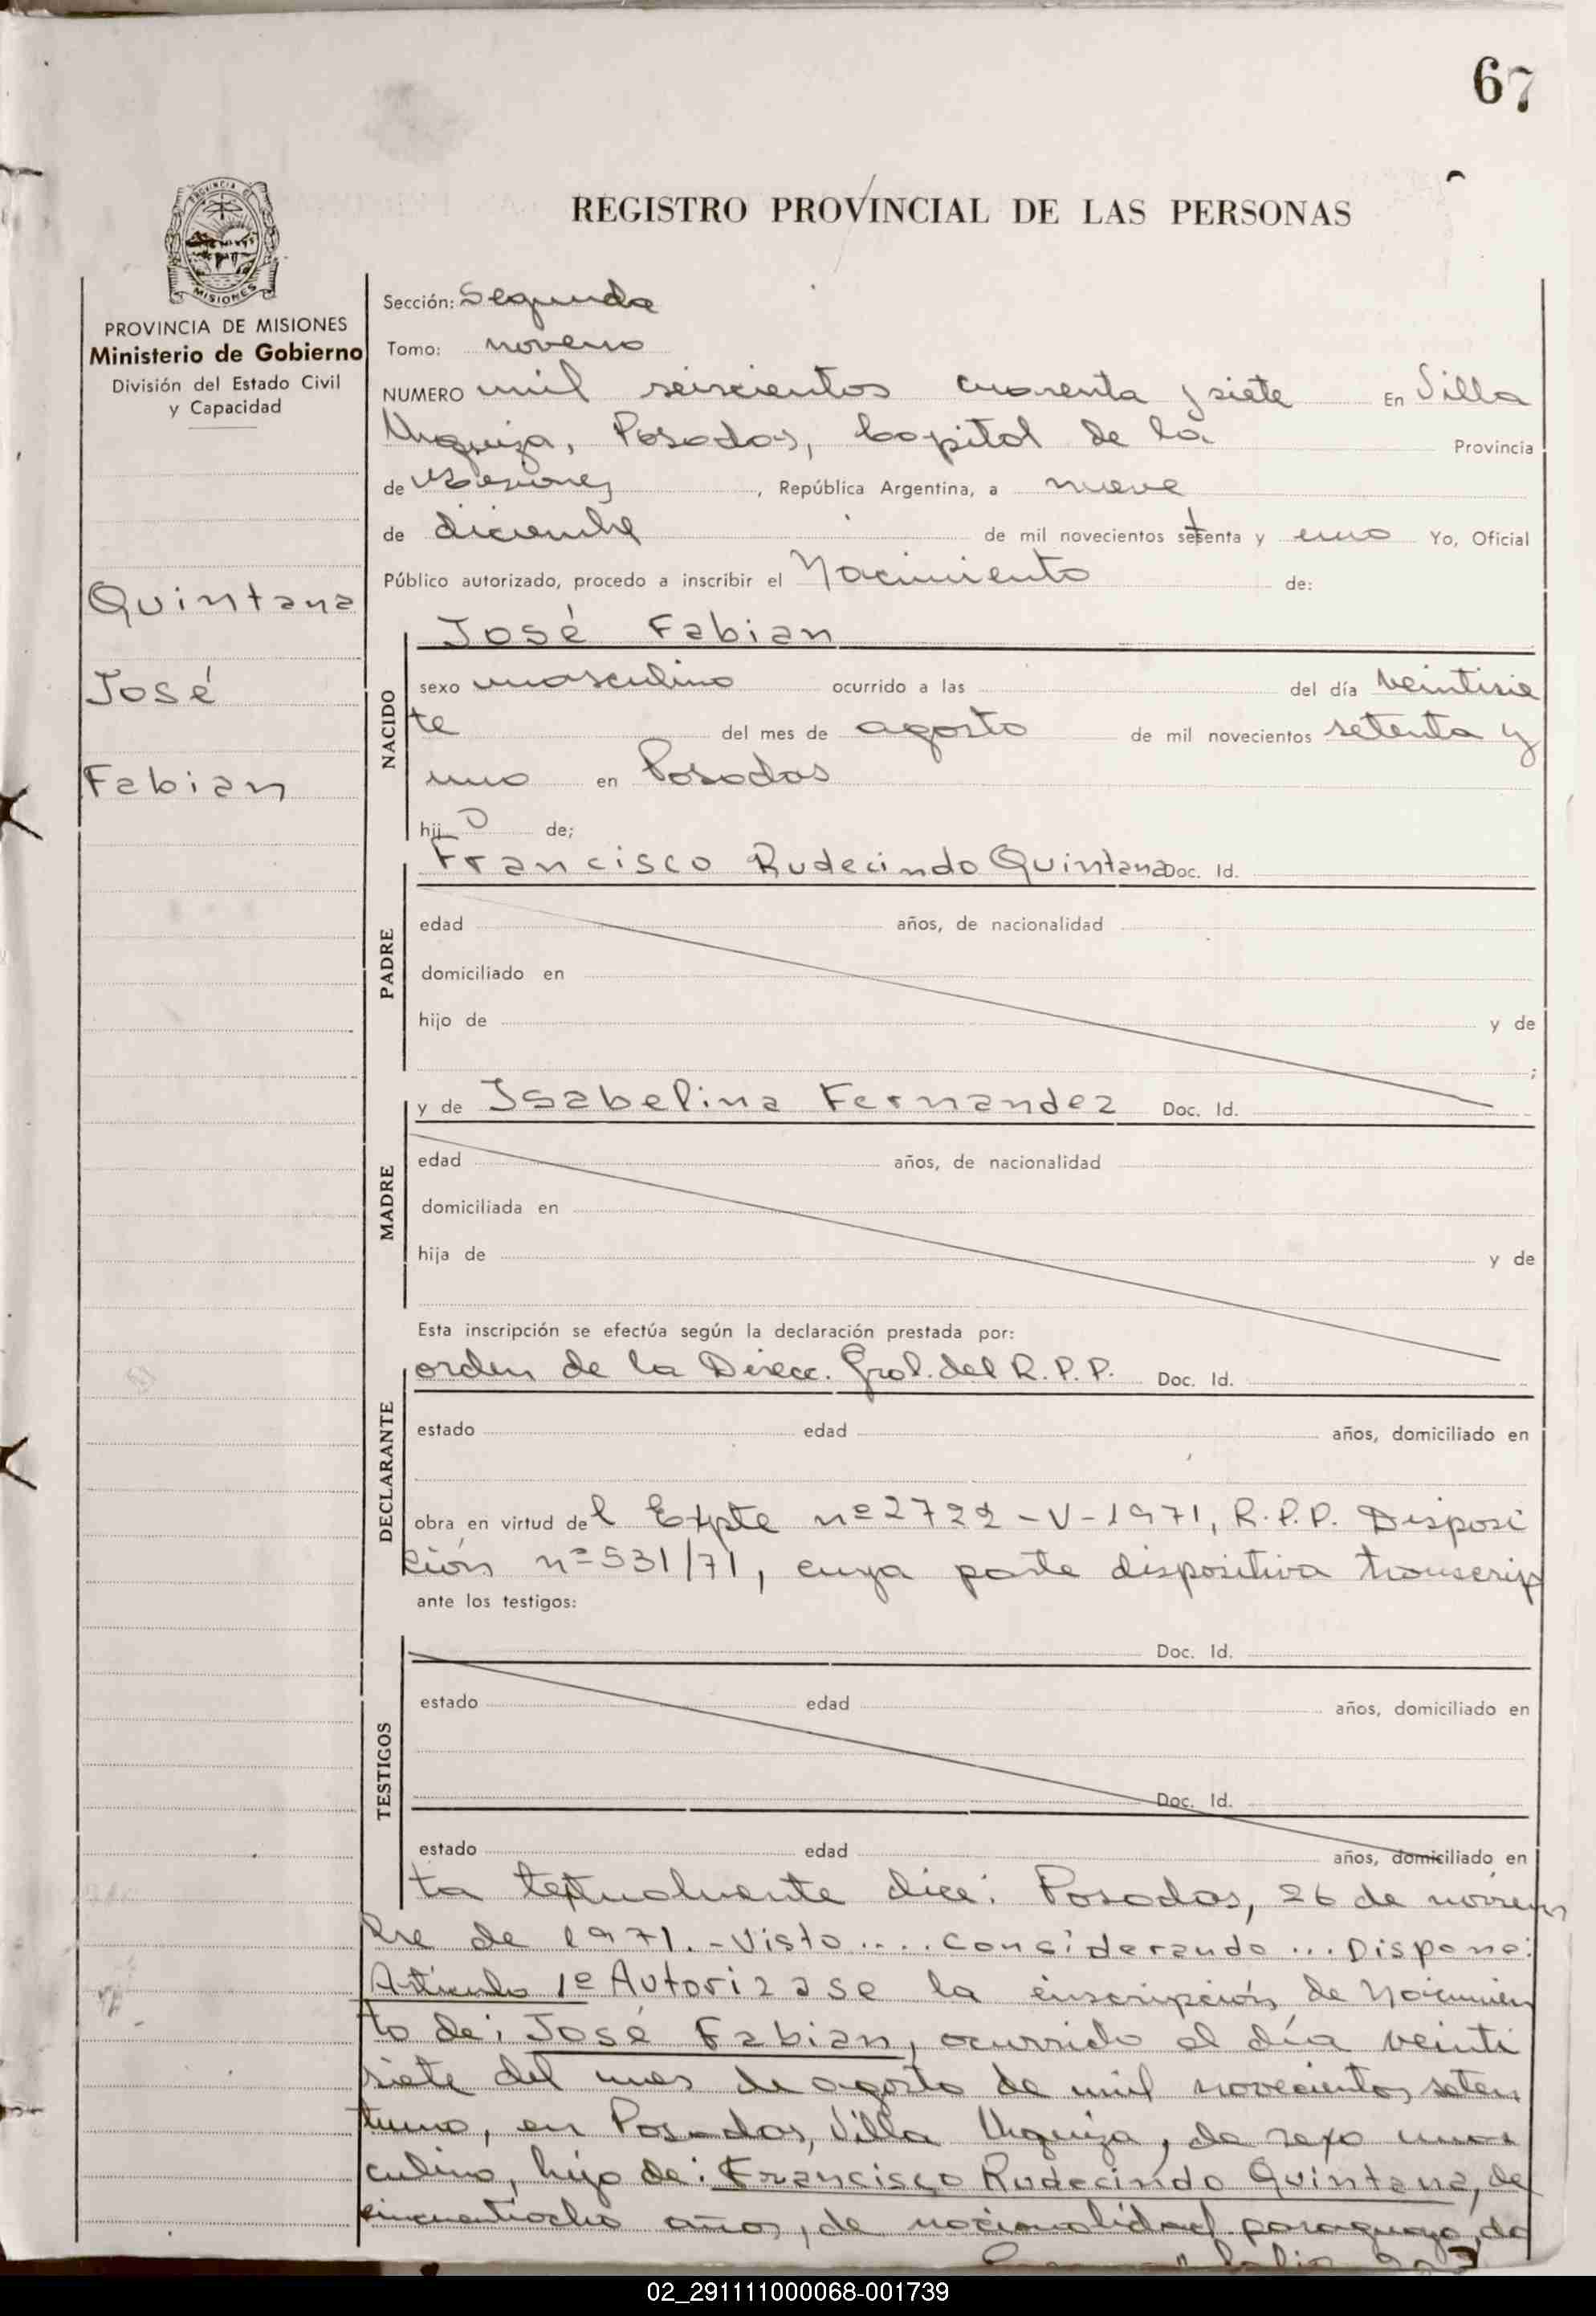 67
REGISTRO PROVINCIAL DE LAS PERSONAS
PROVINCIA DE
MISIONES
PROVINCIA DE MISIONES
Ministerio de Gobierno
División del Estado Civil
y Capacidad
Quintana
José
Fabian
Sección: Segunda
Tomo: noveno
NUMERO mil seiscientos cuarenta y siete En Villa
Urquiza, Posadas, Capital de la Provincia
de Misiones, República Argentina, a nueve
de diciembre de mil novecientos setenta y uno Yo, Oficial
Público autorizado, procedo a inscribir el Nacimiento de:
José Fabian
NACIDO
sexo masculino ocurrido a las del día veintisie
te del mes de agosto de mil novecientos setenta y
uno en Posadas
hijo de;
Francisco Rudecindo Quintana Doc. Id.
PADRE
edad años, de nacionalidad
domiciliado en
hijo de y de
;
y de Isabelina Fernandez Doc. Id.
MADRE
edad años, de nacionalidad
domiciliada en
hija de y de
Esta inscripción se efectúa según la declaración prestada por:
orden de la Direcc. Gral. del R.P.P. Doc. Id.
DECLARANTE
estado edad años, domiciliado en
obra en virtud del Expte nº 2722-V-1971, R.P.P. Disposi
ción nº 531/71, cuya parte dispositiva transcrip
ante los testigos:
TESTIGOS
Doc. Id.
estado edad años, domiciliado en
Doc. Id.
estado edad años, domiciliado en
ta textualmente dice: Posadas, 26 de noviem
bre de 1971.-Visto.... Considerando... Dispone:
Artículo 1º Autorizase la inscripción de Nacimien
to de: José Fabian, ocurrido el día veinti
siete del mes de agosto de mil novecientos seten
tiuno, en Posadas, Villa Urquiza, de sexo mas
culino, hijo de: Francisco Rudecindo Quintana, de
cincuentiocho años, de nacionalidad paraguaya, do
02_291111000068-001739